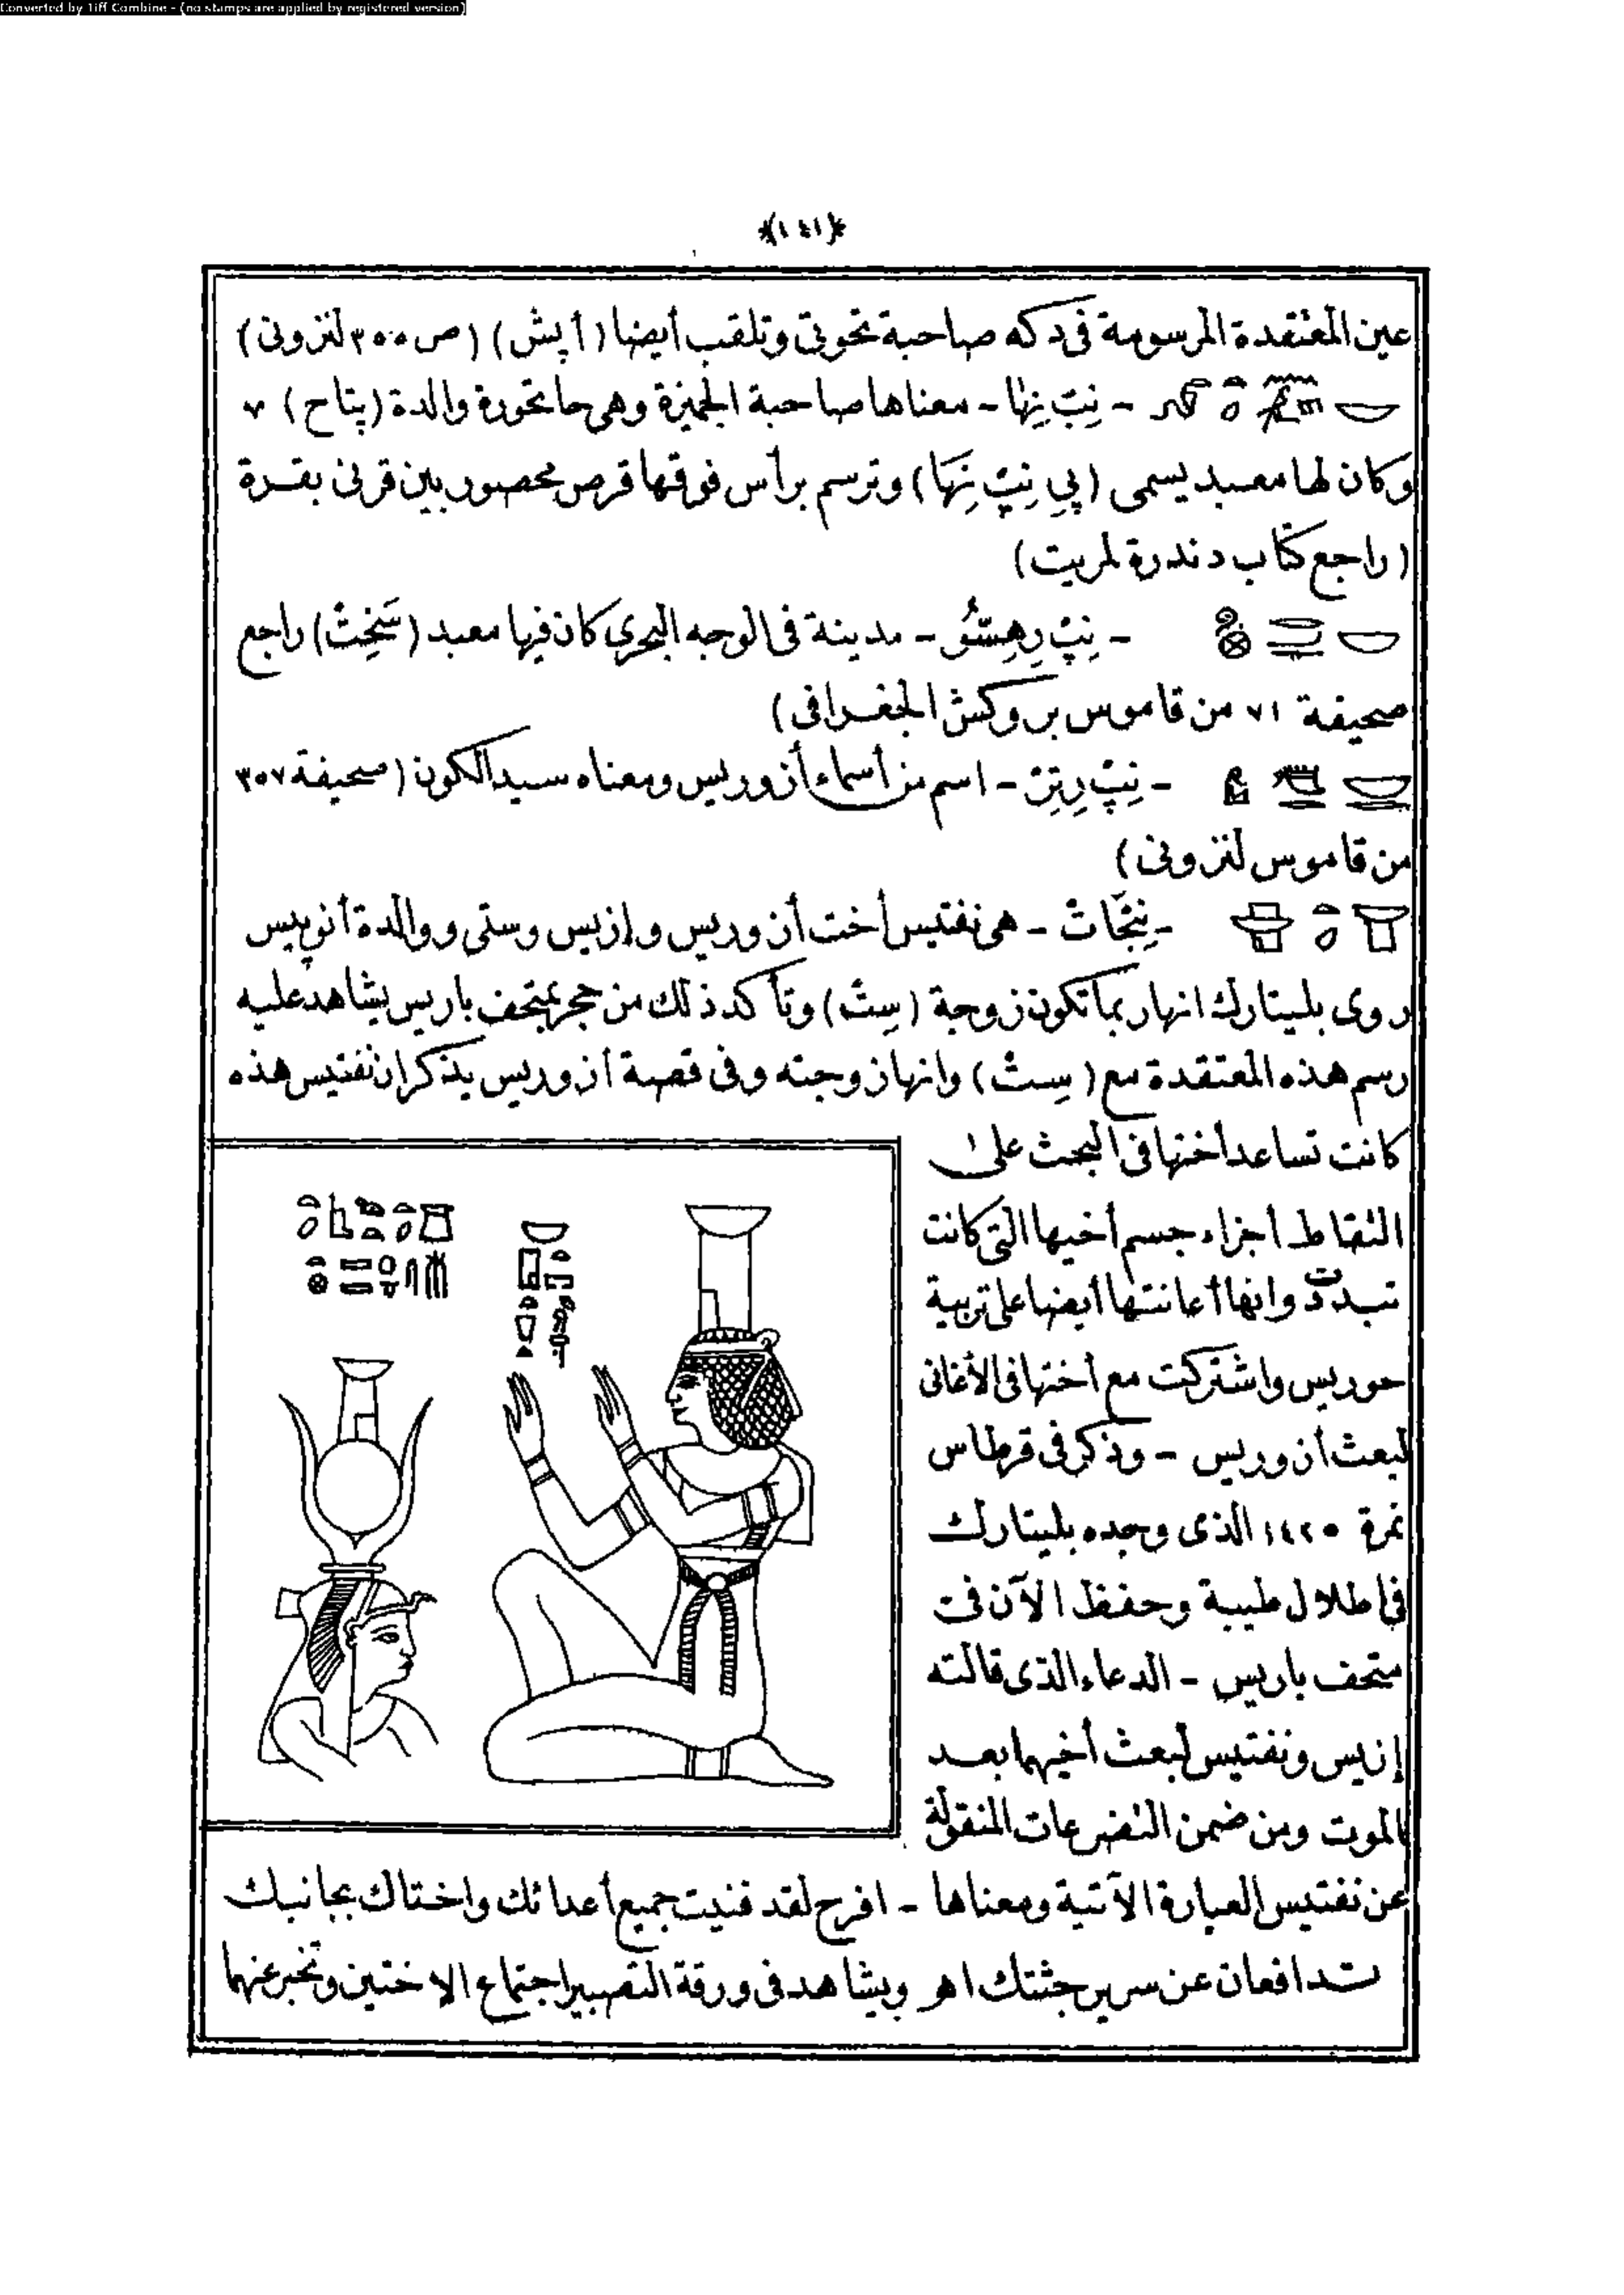 Converted by Tiff Combine - (no stamps are applied by registered version)
﴿١٤١﴾
عين المعتقدة المرسومة فى دكه صاحبة تحوتى وتلقب أيضا (أپش) (ص ٣٥٥ لنزونى)
- نِبْتْ نِهَا - معناها صاحبة الجميزة وهى حاتحورة والدة (پتاح) ٧
وكان لها معبد يسمى (پِي نِبْتْ نِهَا) وترسم برأس فوقها قرص محصور بين قرنى بقرة
(راجع كتاب دندرة لمريت)
- نِبْتْ رِهِسُّو - مدينة فى الوجه البحرى كان فيها معبد (سَخِتْ) راجع
صحيفة ٧١ من قاموس بروكش الجغرافى)
- نِبْ رِتِرْ - اسم من أسماء أزوريس ومعناه سيد الكون (صحيفة ٣٥٧
من قاموس لنزونى)
- نِبْتْحَاتْ - هى نفتيس أخت أزوريس وإزيس وستى ووالدة أنوبيس
روى بليتارك انها ربما تكون زوجة (سِتْ) وتأكد ذلك من حجر بمتحف باريس يشاهد عليه
رسم هذه المعتقدة مع (سِتْ) وانها زوجته وفى قصة أزوريس يذكر ان نفتيس هذه
كانت تساعد أختها فى البحث على
التقاط أجزاء جسم أخيها التى كانت
تبددت وانها أعانتها أيضا على تربية
حوريس واشتركت مع أختها فى الأغانى
لبعث أزوريس - وذكر فى قرطاس
نمرة ١٤٢٥ الذى وجده بليتارك
فى اطلال طيبة وحفظ الآن فى
متحف باريس - الدعاء الذى قالته
إزيس ونفتيس لبعث أخيهما بعد
الموت ومن ضمن التضرعات المنقولة
عن نفتيس العبارة الآتية ومعناها - افرح لقد فنيت جميع أعدائك واختاك بجانبك
تدافعان عن سرير جثتك اهـ ويشاهد فى ورقة التصبير اجتماع الاختين وتخبر عنهما